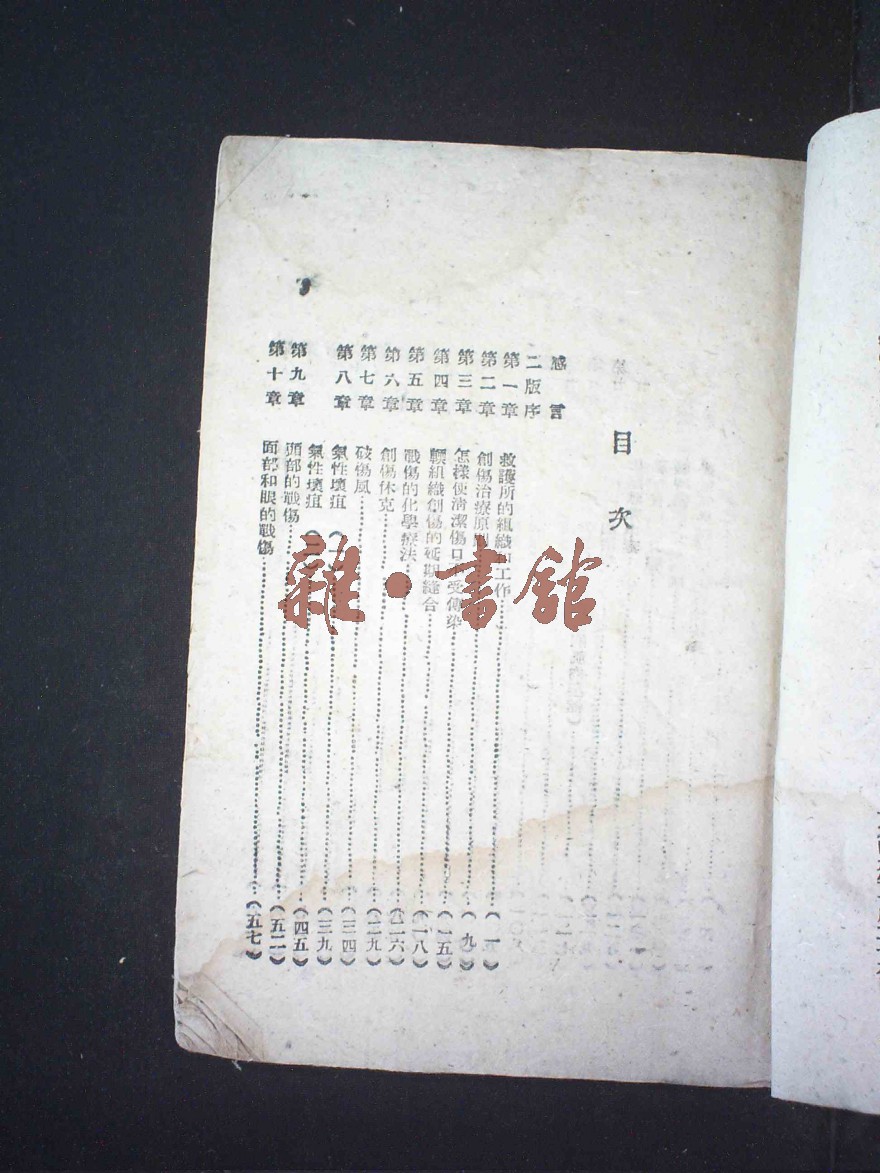 目次
感言
二版序
第一章 救護所的組織和工作……(一)
第二章 創傷治療原則……(九)
第三章 怎樣使清潔傷口不受傳染……(一五)
第四章 輭組織創傷的延期縫合……(一八)
第五章 戰傷的化學療法……(二六)
第六章 創傷休克……(二九)
第七章 破傷風……(三四)
第八章 氣性壞疽(一)……(三九)
氣性壞疽(二)……(四五)
第九章 頭部的戰傷……(五二)
第十章 面部和眼的戰傷……(五七)
雜·書館